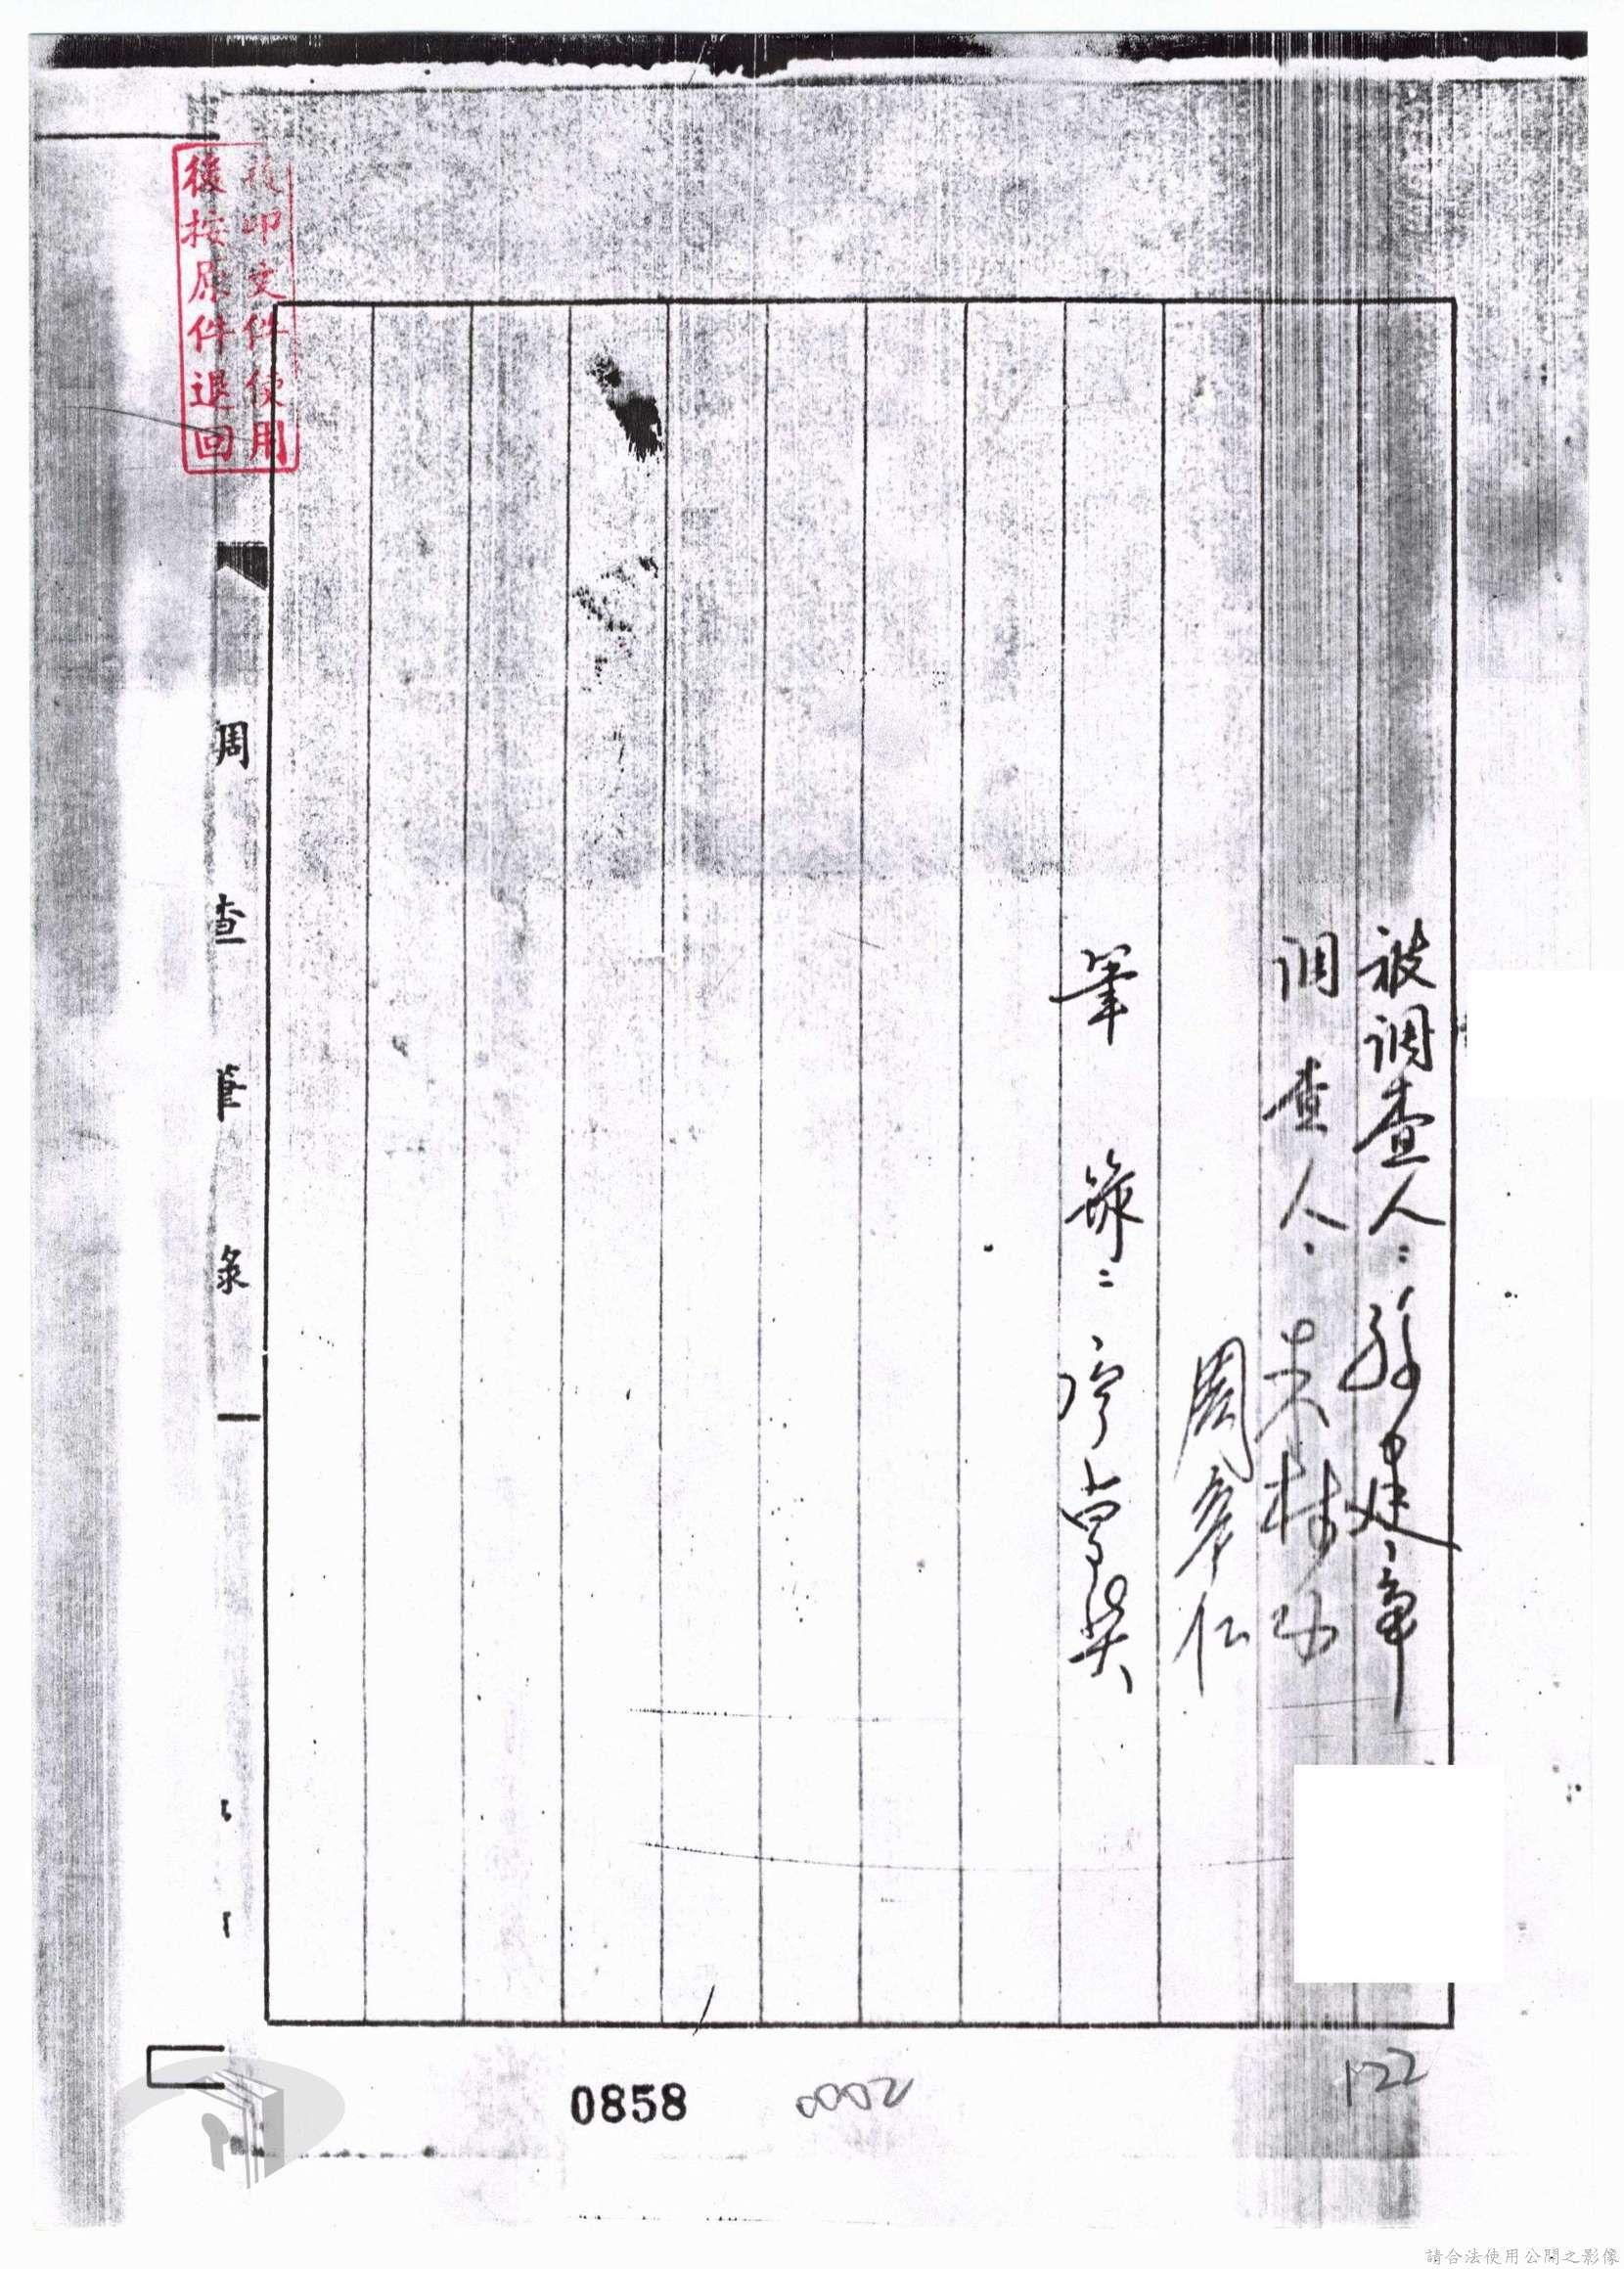 被調查人：孫建章
調查人：吳樹
周孝仁
筆錄：
調查筆錄
複印文件使用
後按原件退回
0858
0002
122
請合法使用公開之影像